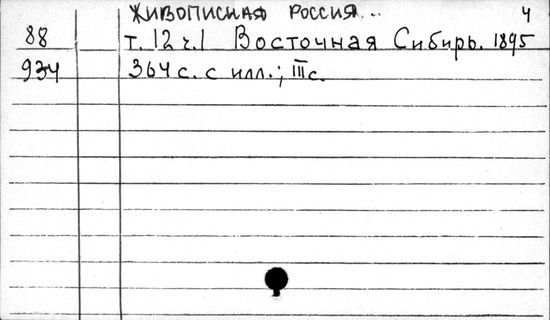 Живописная Россия... 4
88 т. 12 ч. 1 Восточная Сибирь. 1895
934 364 с. с илл.; III с.